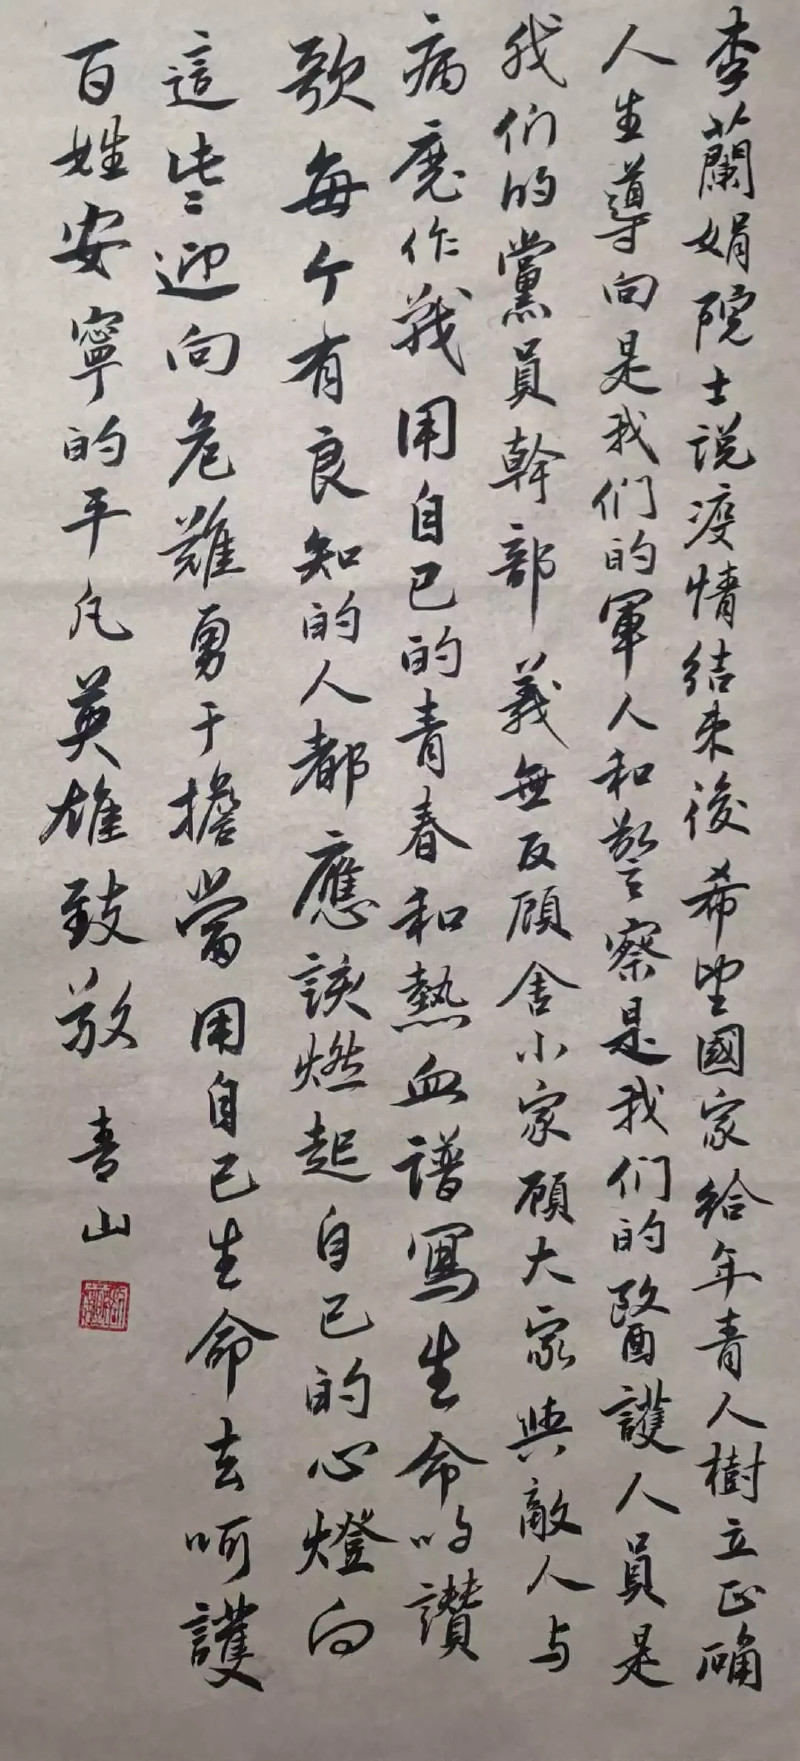 李蘭娟院士説疫情结束後希望國家给年青人樹立正确
人生導向是我们的軍人和警察是我们的醫護人員是
我们的黨員幹部義無反顾舍小家顾大家與敵人与
病魔作战用自己的青春和熱血譜寫生命的讚
歌每个有良知的人都應該燃起自己的心燈向
這些迎向危難勇于擔當用自己生命去呵護
百姓安寧的平凡英雄致敬 青山